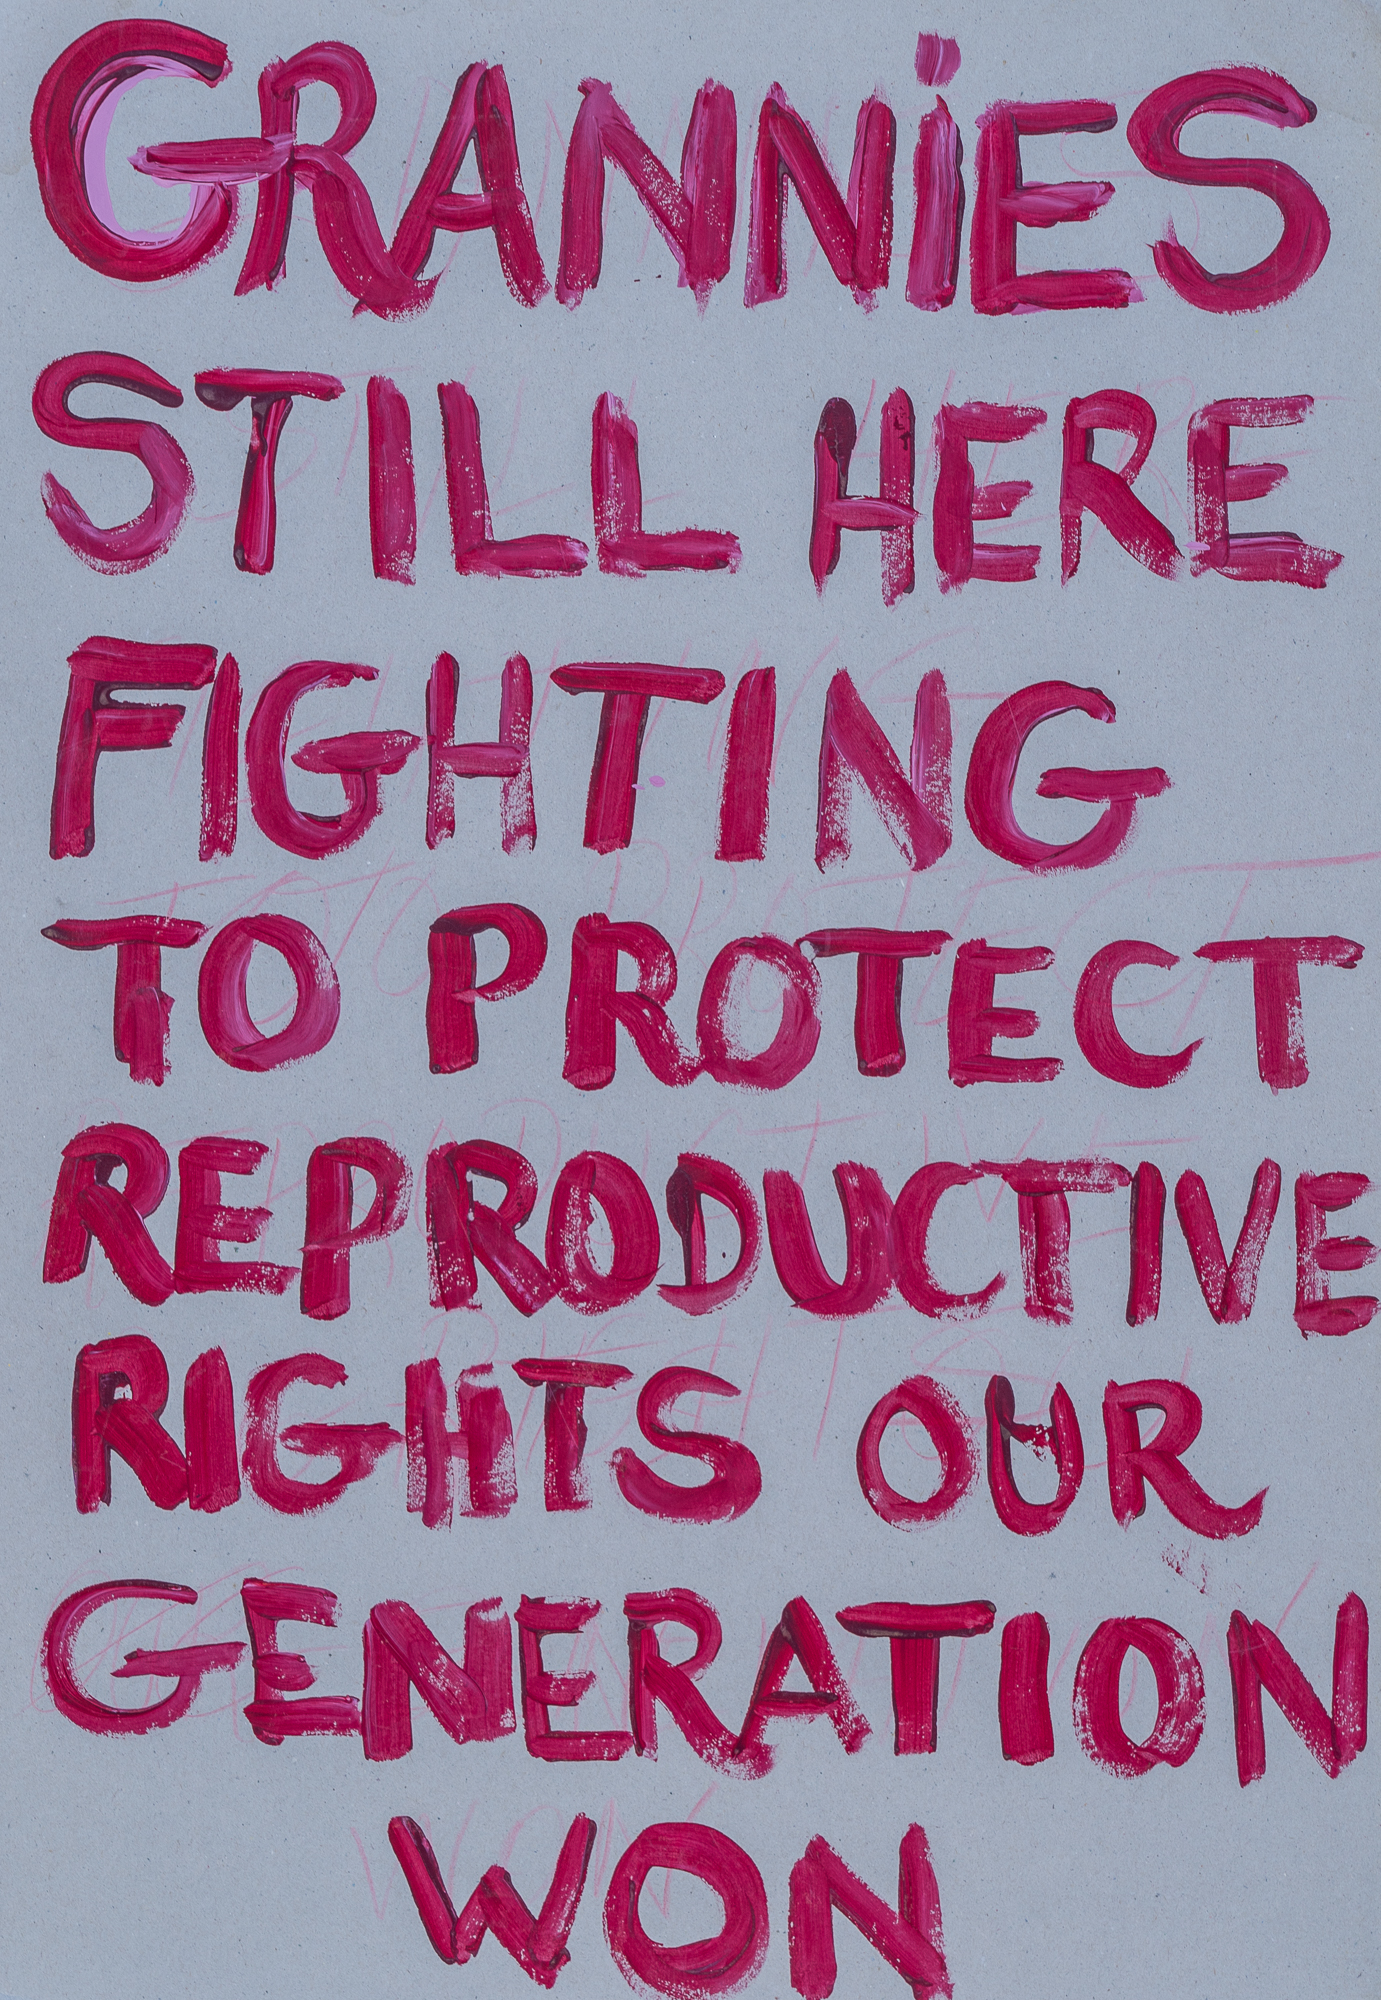 GRANNiES
STILL HERE
FIGHTING
TO PROTECT
REPRODUCTIVE
RIGHTS OUR
GENERATION
WON